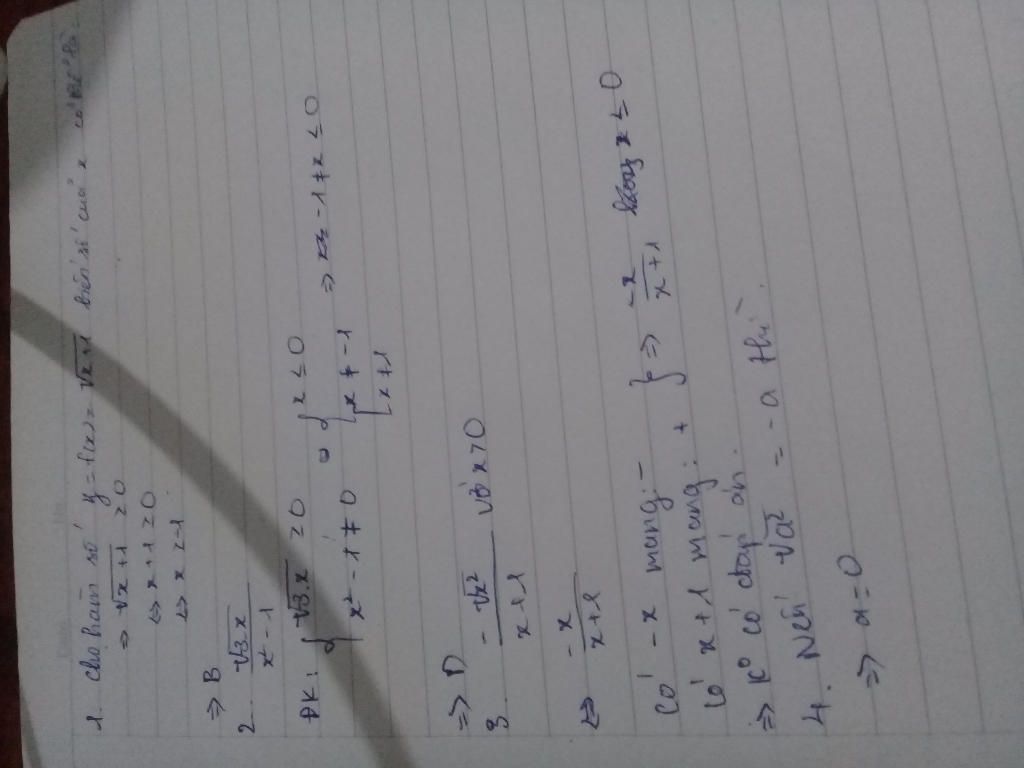 1. Cho hàm số y = f(x) = √x+1 biến số của x có
⇒ √x+1 ≥ 0
⇔ x+1 ≥ 0
⇔ x ≥ -1
⇒ B
2. √3x / x²-1
ĐK: { √3x ≥ 0 ⇔ { x ≤ 0 ⇒ -1 ≠ x ≤ 0
{ x² - 1 ≠ 0 [ x ≠ -1
[ x ≠ 1
⇒ D
3. -√x² / x+1 với x > 0
⇔ -x / x+1
Có -x mang: -
Có x+1 mang: + } ⇒ -x / x+1 x ≤ 0
⇒ K° có đáp án.
4. Nếu √a² = -a thì
⇒ a = 0